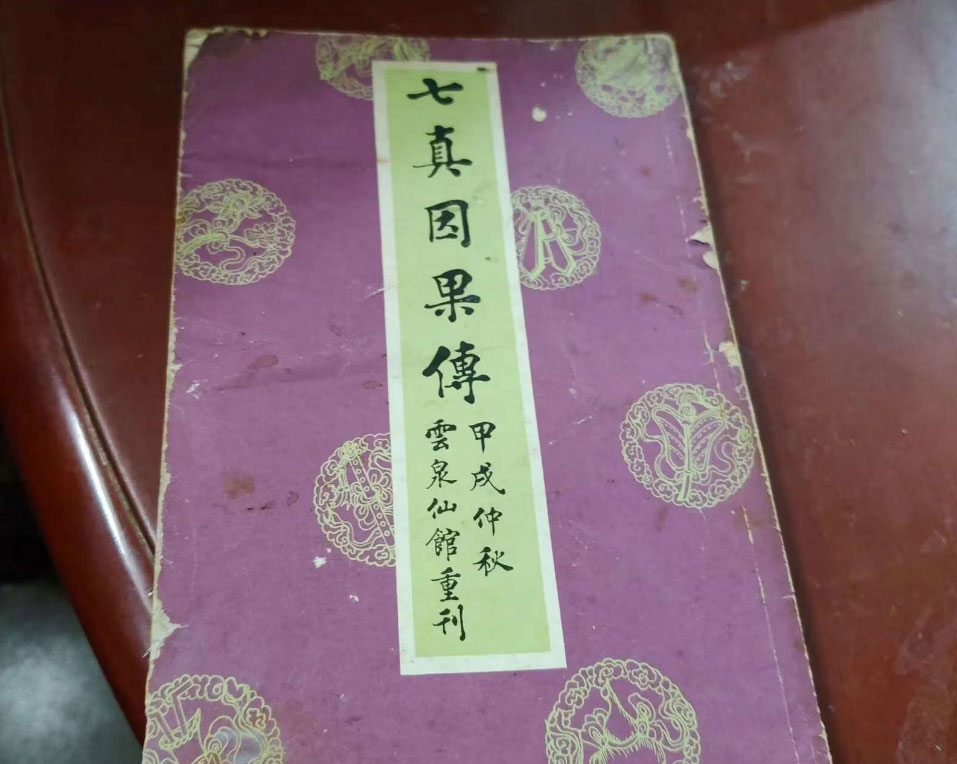 七真因果傳
甲戌仲秋
雲泉仙館重刊